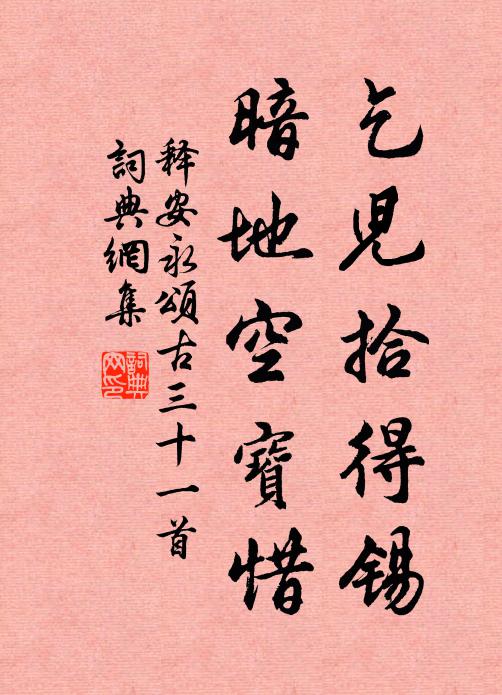 乞児拾得錫
暗地空寶惜
释安永頌古三十一首
詞典網集
詞典网印